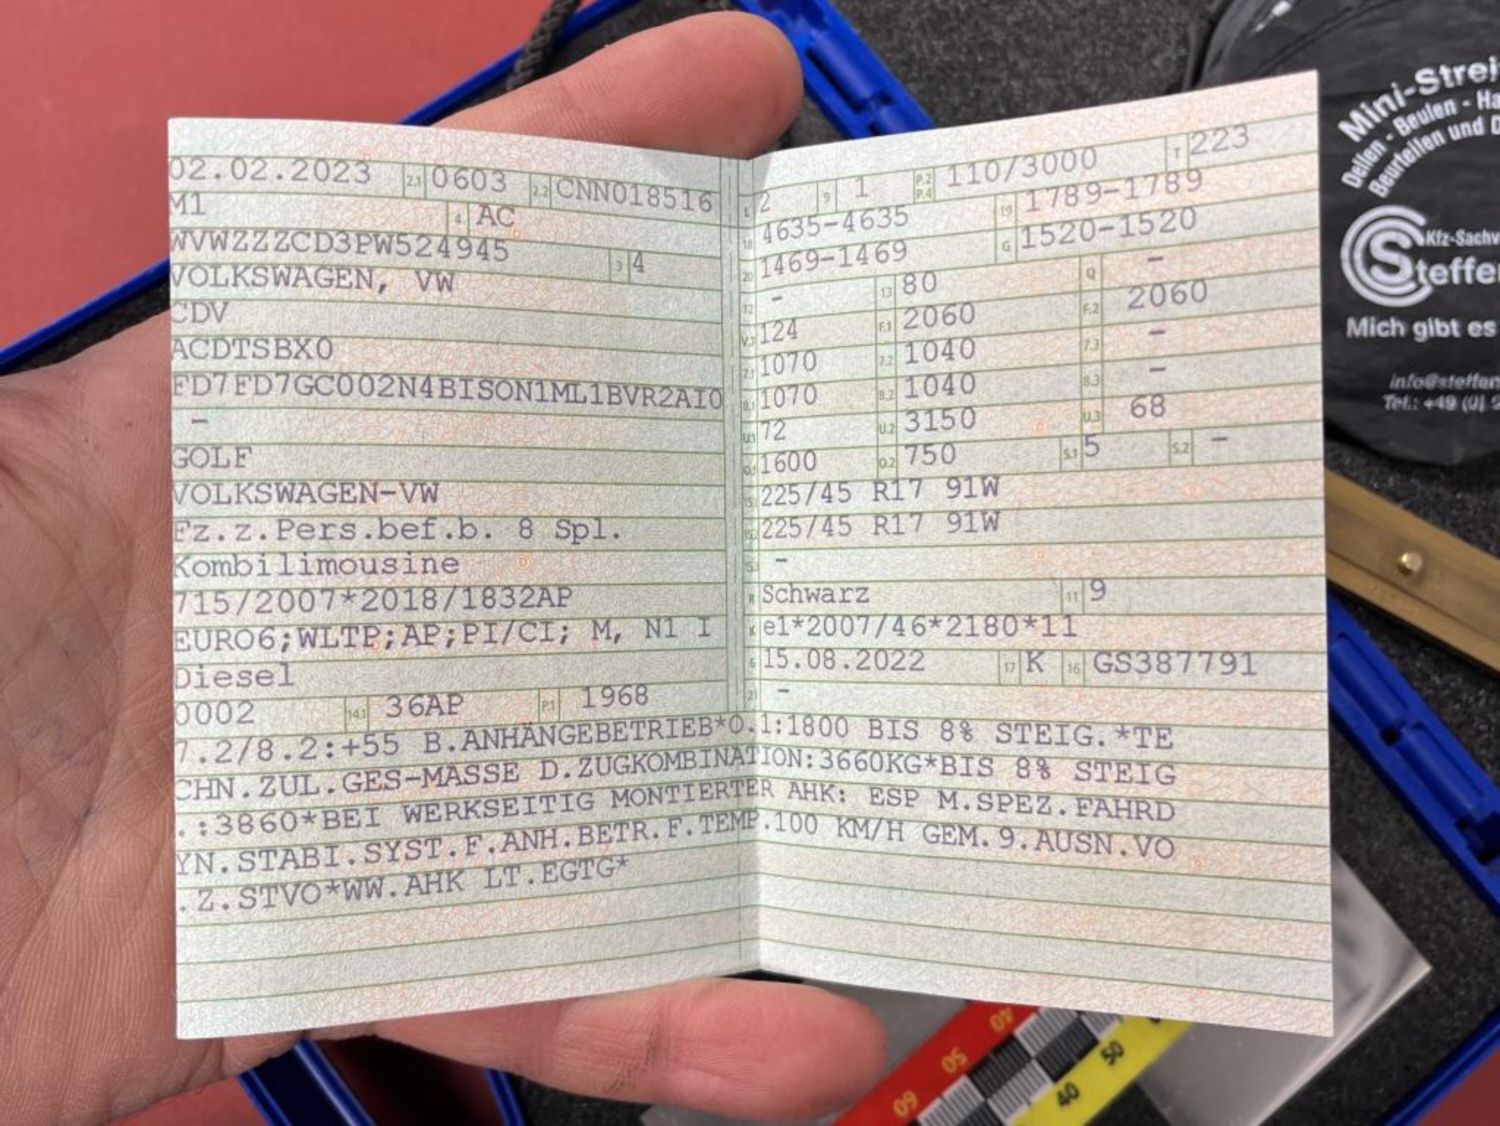 02.02.2023 2.1 0603 2.2 CNN018516
M1 4 AC
WVWZZZCD3PW524945 3 4
VOLKSWAGEN, VW
CDV
ACDTSBX0
FD7FD7GC002N4BISON1ML1BVR2AI0
-
GOLF
VOLKSWAGEN-VW
Fz.z.Pers.bef.b. 8 Spl.
Kombilimousine
715/2007*2018/1832AP
EURO6;WLTP;AP;PI/CI; M, N1 I
Diesel
0002 14.1 36AP P.1 1968
L 2 9 1 P.2 P.4 110/3000 T 223
18 4635-4635 19 1789-1789
20 1469-1469 G 1520-1520
12 - 13 80 Q -
V.7 124 F.1 2060 F.2 2060
7.1 1070 7.2 1040 7.3 -
8.1 1070 8.2 1040 8.3 -
U.1 72 U.2 3150 U.3 68
O.1 1600 O.2 750 S.1 5 S.2 -
15.1 225/45 R17 91W
15.2 225/45 R17 91W
15.3 -
R Schwarz 11 9
K e1*2007/46*2180*11
6 15.08.2022 17 K 16 GS387791
21 -
7.2/8.2:+55 B.ANHÄNGEBETRIEB*O.1:1800 BIS 8% STEIG.*TE
CHN.ZUL.GES-MASSE D.ZUGKOMBINATION:3660KG*BIS 8% STEIG
.:3860*BEI WERKSEITIG MONTIERTER AHK: ESP M.SPEZ.FAHRD
YN.STABI.SYST.F.ANH.BETR.F.TEMP.100 KM/H GEM.9.AUSN.VO
.Z.STVO*WW.AHK LT.EGTG*
Mini-Strei
Dellen - Beulen - Ha
Beurteilen und D
Kfz-Sachv
Steffe
Mich gibt es
info@steffen
Tel.: +49 (0) 2
40
50
60
50
40